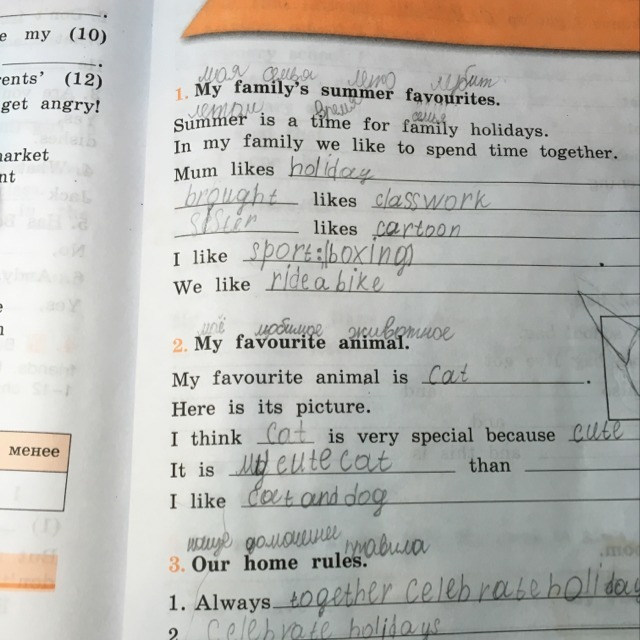 e my (10)
ents' (12)
get angry!
market
nt
менее
моя семья лето любит
1. My family's summer favourites.
летом время семье
Summer is a time for family holidays.
In my family we like to spend time together.
Mum likes holiday
brought likes classwork
sister likes cartoon
I like sport:(boxing)
We like ride a bike
моё любимое животное
2. My favourite animal.
My favourite animal is cat.
Here is its picture.
I think cat is very special because cute
It is my cute cat than
I like cat and dog
наше домашнее правила
3. Our home rules.
1. Always together celebrate holiday
2 celebrate holidays